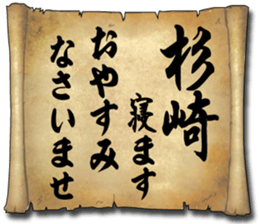 杉崎
寝ます
おやすみ
なさいませ